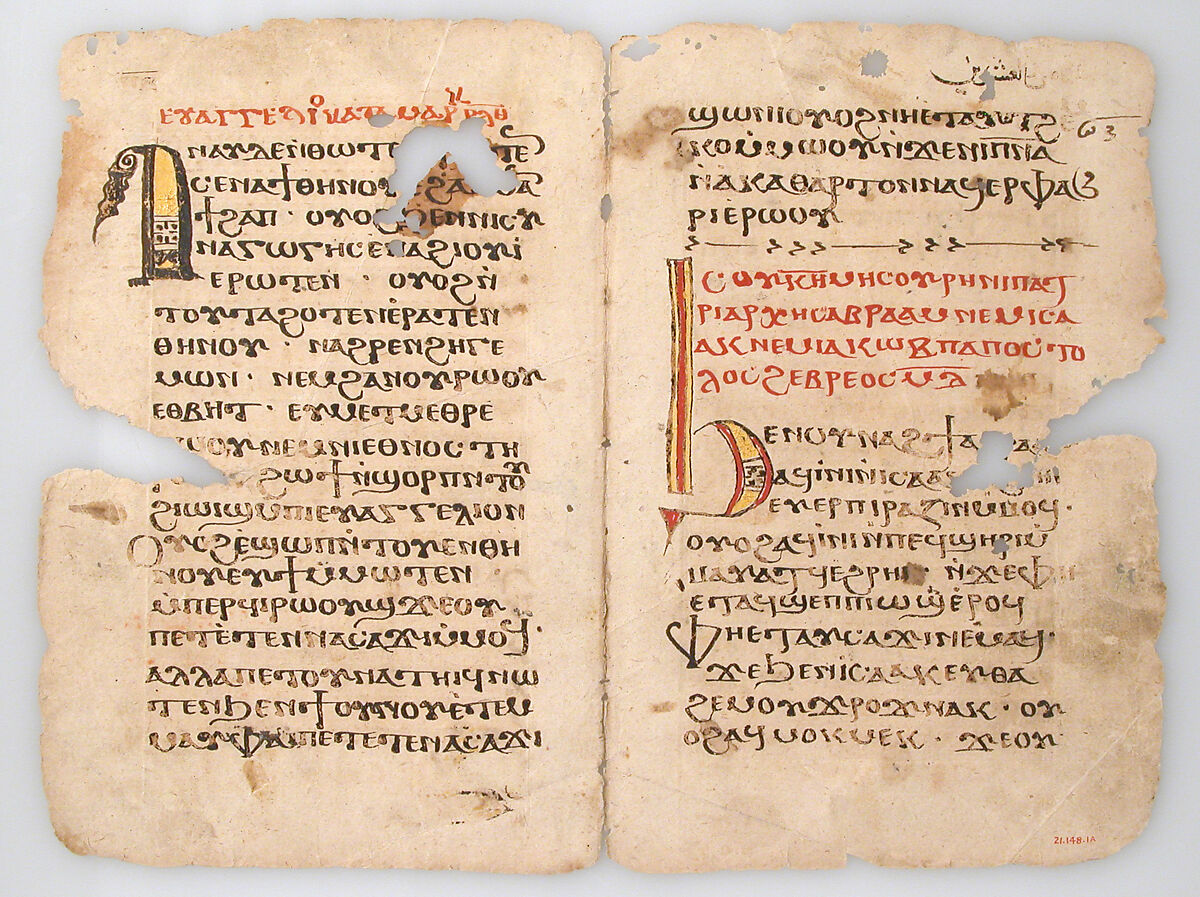 ⲉⲩⲁⲅⲅⲉⲗⲓⲟ ⲕⲁⲧⲁ ⲙⲁⲣ
ⲁⲛⲁⲩ ⲇⲉ ⲛⲑⲱⲧⲉ
ⲥⲉⲛⲁϯ ⲑⲏⲛⲟⲩ
ϯϩⲁⲡ · ⲟⲩⲟϩ ϧⲉⲛ ⲛⲓⲥⲩ
ⲛⲁⲅⲱⲅⲏ ⲥⲉⲛⲁϩⲓⲟⲩⲓ
ⲉⲣⲱⲧⲉⲛ · ⲟⲩⲟϩ ⲛ̀
ⲧⲟⲩⲧⲁϩⲟ ⲧⲉⲛ ⲉ̀ⲣⲁⲧⲉⲛ
ⲑⲏⲛⲟⲩ · ⲛⲁϩⲣⲉⲛ ϩⲏⲅⲉ
ⲙⲱⲛ · ⲛⲉⲙ ϩⲁⲛⲟⲩⲣⲱⲟⲩ
ⲉⲑⲃⲏⲧ · ⲉⲩⲙⲉⲧⲙⲉⲑⲣⲉ
ⲛⲱⲟⲩ ⲛⲉⲙ ⲛⲓⲉⲑⲛⲟⲥ ⲧⲏ
ϩⲱϯ ⲛ̀ϣⲟⲣⲡ ⲛ̀ⲧⲟⲩ
ϩⲓⲱⲓϣ ⲙⲡⲓⲉⲩⲁⲅⲅⲉⲗⲓⲟⲛ
ⲟⲩⲟϩ ⲉϣⲱⲡ ⲛ̀ⲧⲟⲩⲉⲛ ⲑⲏ
ⲛⲟⲩ ⲉⲩϯ ⲙ̀ⲙⲱⲧⲉⲛ
ⲙ̀ⲡⲉⲣϥⲓⲣⲱⲟⲩϣ ϫⲉ ⲟⲩ
ⲡⲉⲧⲉ̀ⲧⲉⲛⲛⲁⲥⲁϫⲓ ⲙ̀ⲙⲟϥ ·
ⲁⲗⲗⲁ ⲡⲉⲧⲟⲩⲛⲁⲧⲏⲓϥ ⲛⲱ
ⲧⲉⲛ ϧⲉⲛ ϯⲟⲩⲛⲟⲩ ⲉ̀ⲧⲉⲙ
ⲙⲁⲩ ⲫⲁⲓ ⲡⲉⲧⲉⲧⲉⲛⲁⲥⲁϫⲓ
ϣⲱⲛⲓ ⲟⲩⲟϩ ⲛⲏⲉⲧⲁⲩⲧϩ
ⲕⲟ ⲙ̀ⲙⲱⲟⲩ ⲛ̀ϫⲉ ⲛⲓⲡ̅ⲛ̅ⲁ̅
ⲛ̀ⲁⲕⲁⲑⲁⲣⲧⲟⲛ ⲛⲁϥⲉⲣⲫⲁϧ
ⲣⲓ ⲉⲣⲱⲟⲩ
ⲥⲟⲩ ⲕ̅ⲏ̅ ⲙⲏⲥⲟⲩⲣⲏ ⲛⲓⲡⲁⲧ
ⲣⲓⲁⲣⲭⲏⲥ ⲁⲃⲣⲁⲁⲙ ⲛⲉⲙ ⲓⲥⲁ
ⲁⲕ ⲛⲉⲙ ⲓⲁⲕⲱⲃ ⲡⲁⲡⲟⲥⲧⲟ
ⲗⲟⲥ ϩⲉⲃⲣⲉⲟⲥ ⲙ̅ⲁ̅
ϧⲉⲛ ⲟⲩⲛⲁϩϯ ⲁⲃⲣⲁ
ⲁϥⲓⲛⲓ ⲛⲓⲥⲁⲁⲕ
ⲉⲩⲉⲣⲡⲓⲣⲁⲍⲓⲛ ⲙ̀ⲙⲟϥ ·
ⲟⲩⲟϩ ⲁϥⲓⲛⲓ ⲙ̀ⲡⲉϥϣⲏⲣⲓ ⲙ̀
ⲙⲁⲩⲁⲧϥ ⲉϩⲣⲏⲓ · ⲛ̀ϫⲉ ⲫⲏ
ⲉⲧⲁϥϣⲉⲡ ⲡⲓⲱϣ ⲉ̀ⲣⲟϥ
ⲫⲏⲉⲧⲁⲩⲥⲁϫⲓ ⲛⲉⲙⲁϥ ·
ϫⲉ ϧⲉⲛ ⲓⲥⲁⲁⲕ ⲉⲩⲑⲁ
ϩⲉⲙ ⲟⲩϫⲣⲟϫ ⲛⲁⲕ · ⲟⲩ
ⲟϩ ⲁϥⲙⲟⲕⲙⲉⲕ · ϫⲉ ⲟⲩ
21.148.1A